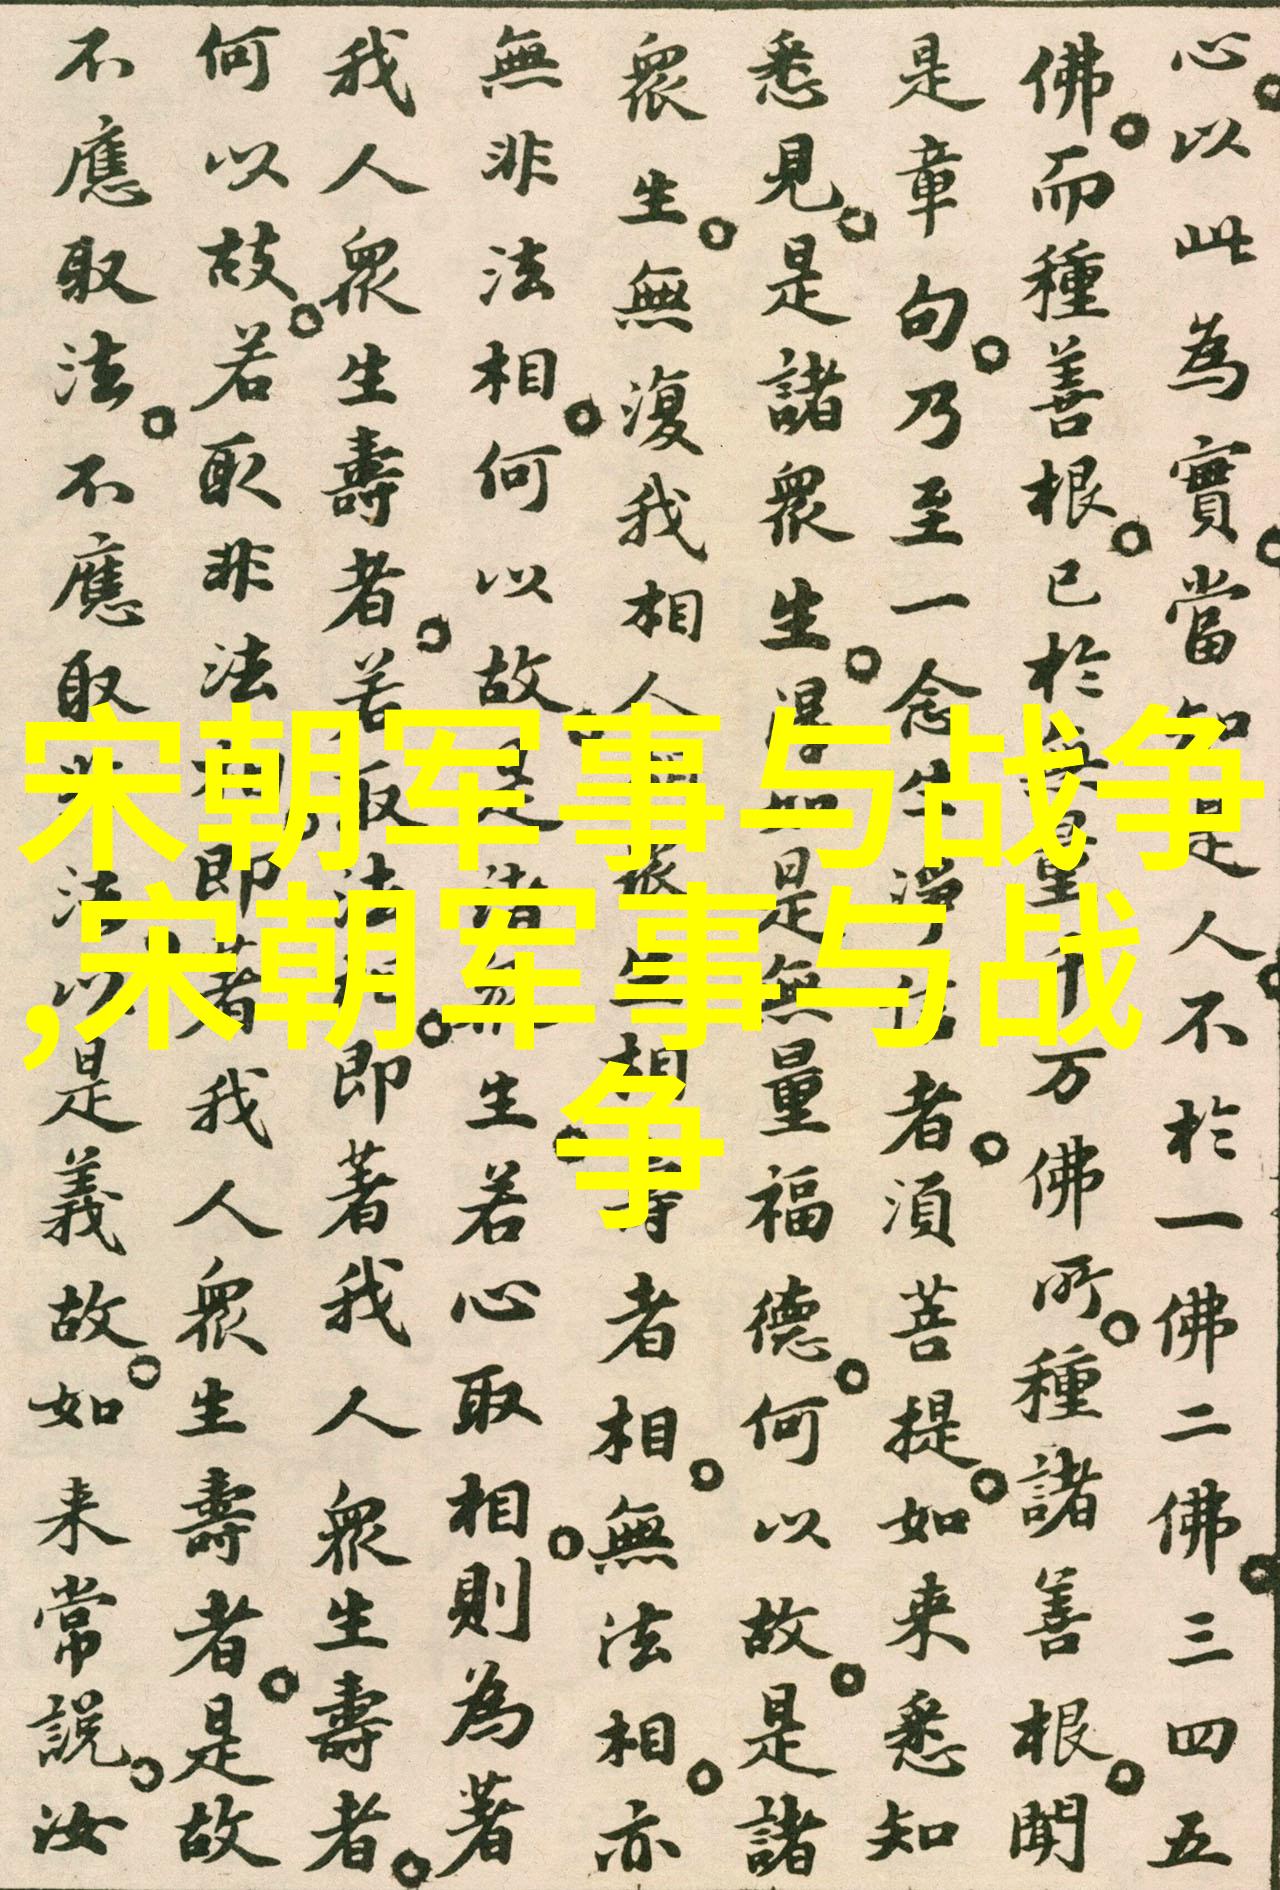 宋朝军事与战争
,宋朝军事与战
争
心。以此為實。當知是人。不於一佛二佛。三四五
佛。而種善根。已於無量千万佛所。種諸善根。聞
是章句。乃至一念生淨信者。須菩提。如来悉知
悉見。是諸眾生。得如是無量福德。何以故。是諸
眾生。無復我相人相眾生相壽者相。無法相。亦
無非法相。何以故。是諸眾生。若心取相。則為著
我人眾生壽者。若取法相。即著我人眾生壽者。
何以故。若取非法相。即著我人眾生壽者。是故
不應取法。不應取非法。以是義故。如来常說。汝